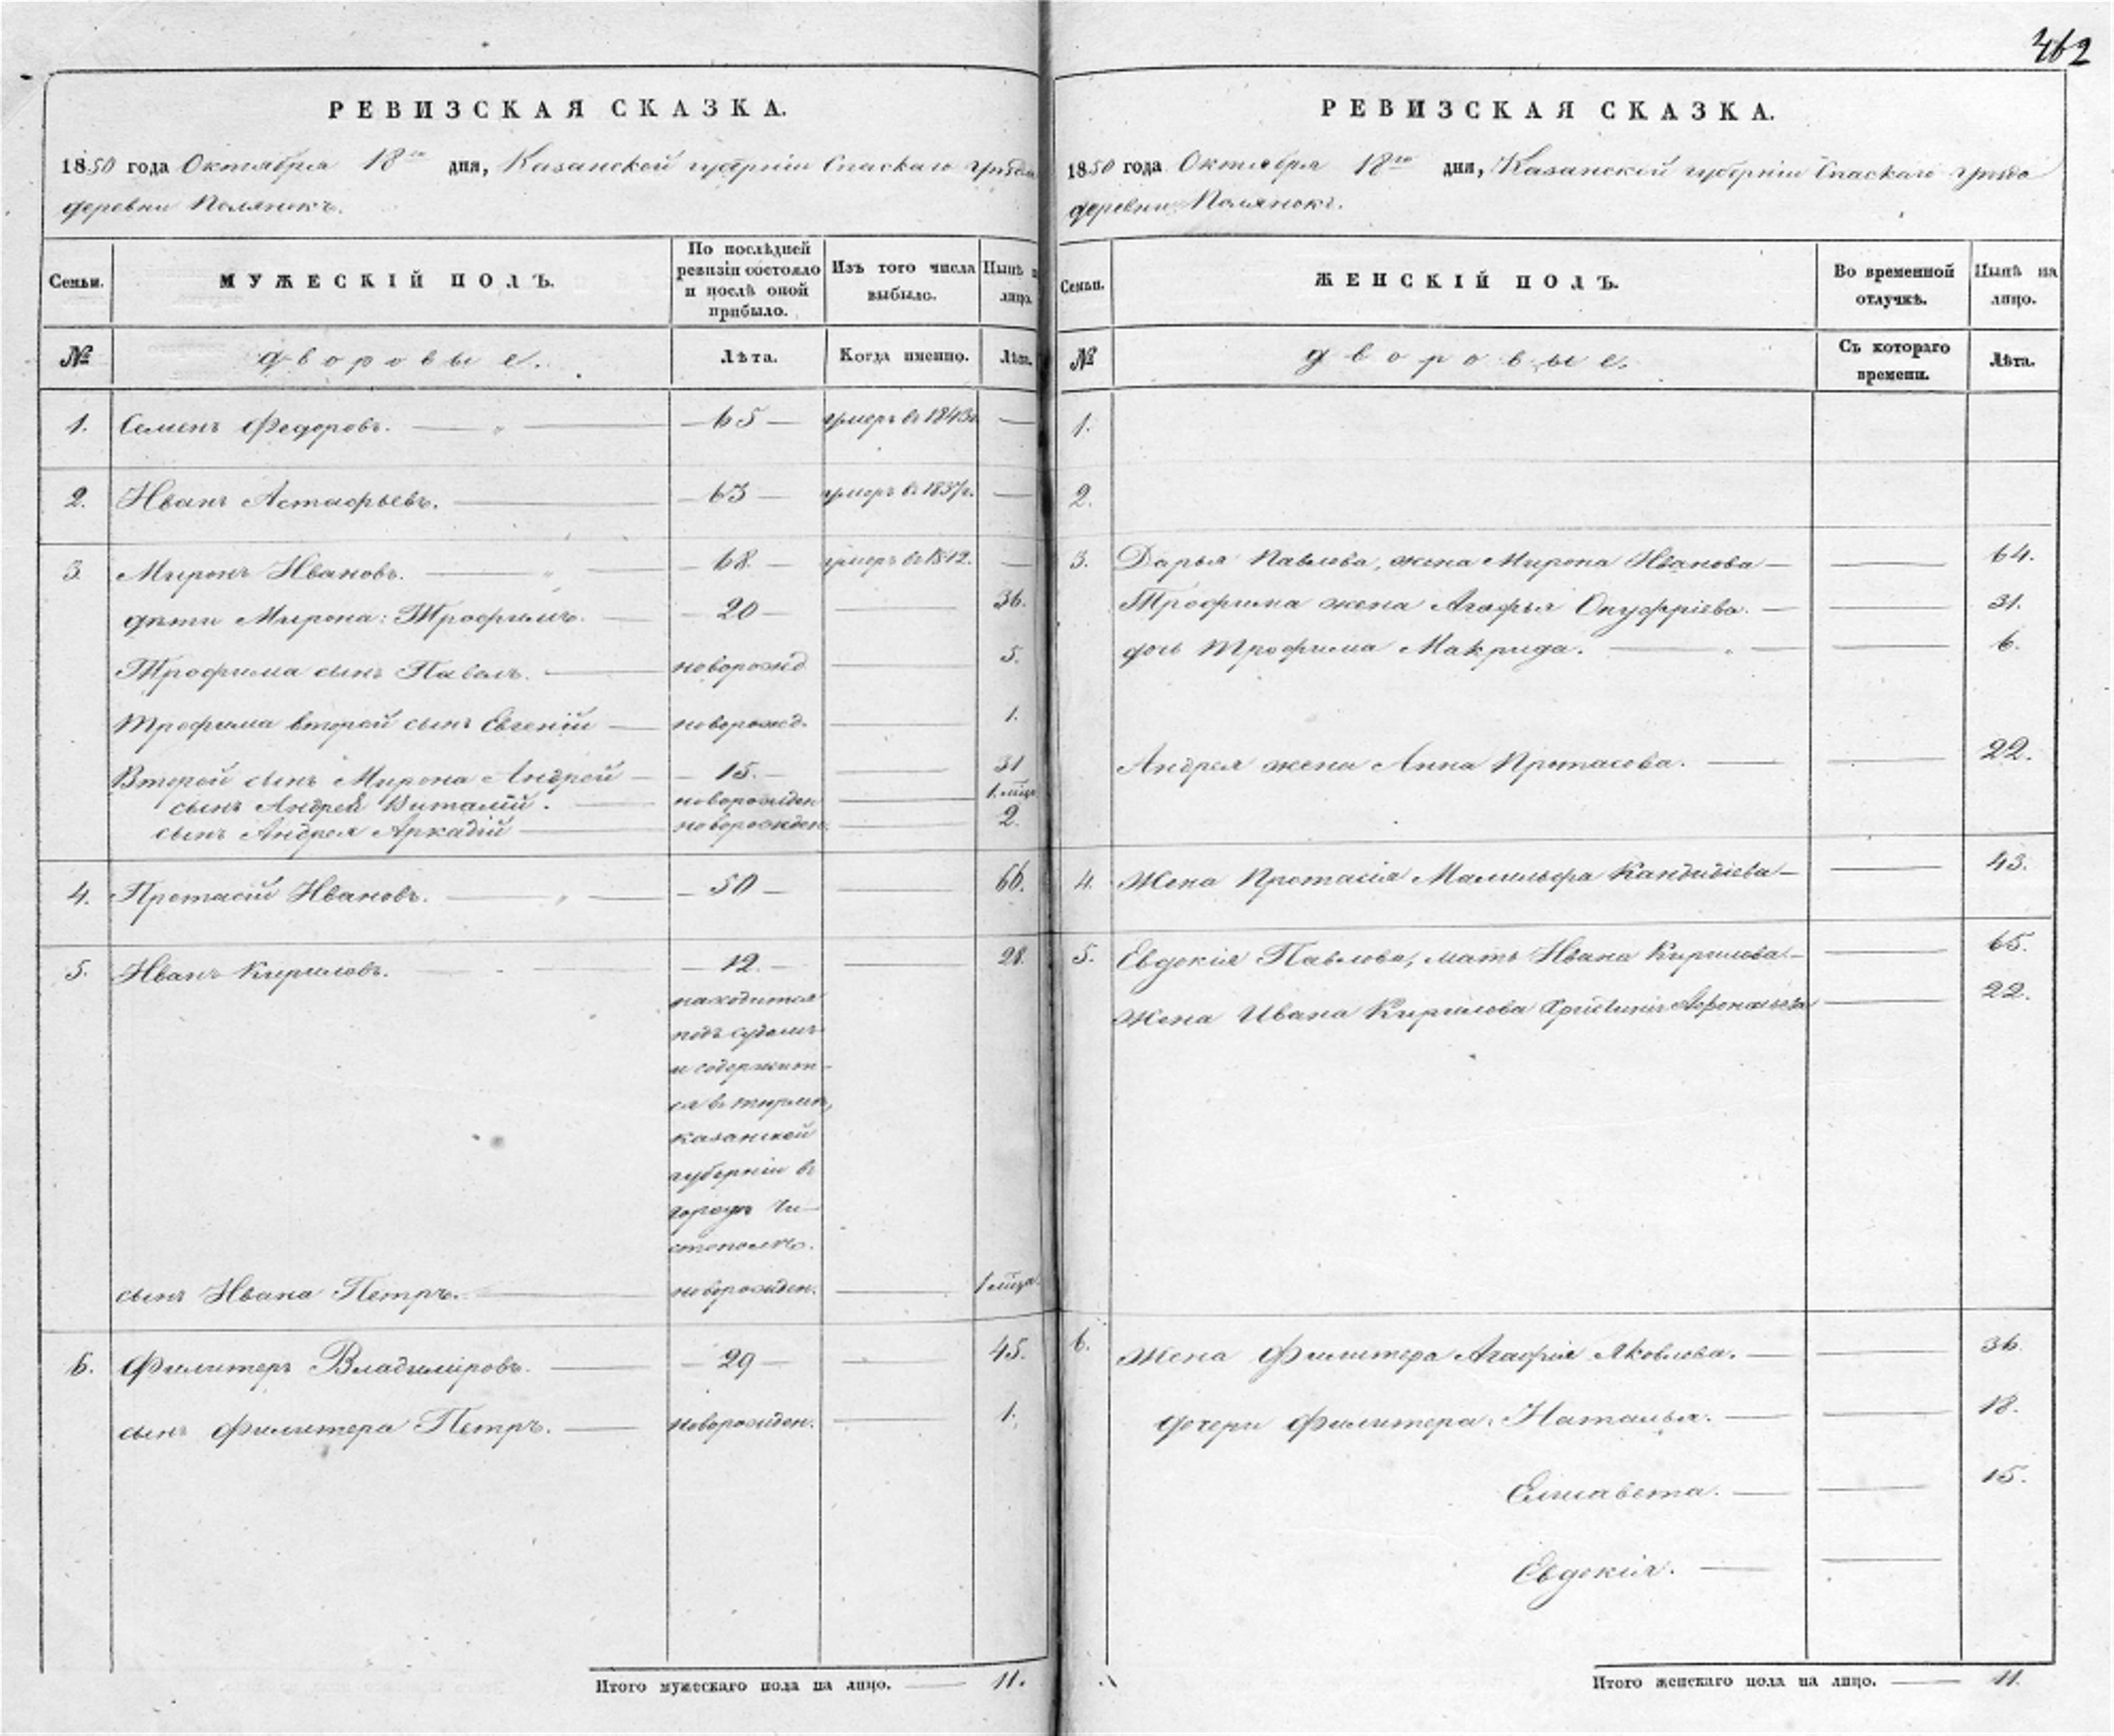 462
РЕВИЗСКАЯ СКАЗКА.
1850 года Октября 18го дня, Казанской губерніи Спаскаго уѣзда
деревни Полянокъ.
Семьи.
МУЖЕСКІЙ ПОЛЪ.
По послѣдней
ревизіи состояло
и послѣ оной
прибыло.
Изъ того числа
выбыло.
Нынѣ н
лицо.
№
дворовые.
Лѣта.
Когда именно.
Лѣта.
1. Семенъ Федоровъ. — 65 — умеръ въ 1843г. —
2. Иванъ Астафьевъ. — 63 — умеръ въ 1837г. —
3. Миронъ Ивановъ. — 68. — умеръ въ 1842. —
дѣти Мирона: Трофимъ. — 20 — 36.
Трофима сынъ Павелъ. — новорожд — 5.
Трофима второй сынъ Евгеній — новорожд. — 1.
Второй сынъ Мирона Андрей — 15. — 31
сынъ Андрей Виталій. — новорожден — 1. мѣця
сынъ Андрея Аркадій — новорожден. — 2.
4. Протасій Ивановъ. — 50 — 66.
5. Иванъ Кириловъ. — 12. — 28.
находится
подъ судомъ
и содержит-
ся въ тюрьмѣ,
казанской
губерніи въ
городѣ Чи-
стополѣ.
сынъ Ивана Петръ. — новорожден. — 1 мѣця.
6. Филитеръ Владиміровъ. — 29 — 45.
сынъ Филитера Петръ. — новорожден. — 1.
Итого мужескаго пола на лицо. — 11.
РЕВИЗСКАЯ СКАЗКА.
1850 года Октября 18го дня, Казанской губерніи Спаскаго уѣзда
деревни Полянокъ.
Семьи.
ЖЕНСКІЙ ПОЛЪ.
Во временной
отлучкѣ.
Нынѣ на
лицо.
№
дворовые.
Съ котораго
времени.
Лѣта.
1.
2.
3. Дарья Павлова, жена Мирона Иванова — 64.
Трофима жена Агафья Онуфріева. — 31.
дочь Трофима Макрида. — 6.
Андрея жена Анна Протасова. — 22.
4. Жена Протасія Мамильфа Кандидіева — 43.
5. Евдокія Павлова, мать Ивана Кирилова — 65.
Жена Ивана Кирилова Христинія Афонасьева — 22.
6. Жена Филитера Агафія Яковлева. — 36.
дочери Филитера: Наталья. — 18.
Елисавета. — 15.
Евдокія. —
Итого женскаго пола на лицо. — 11.